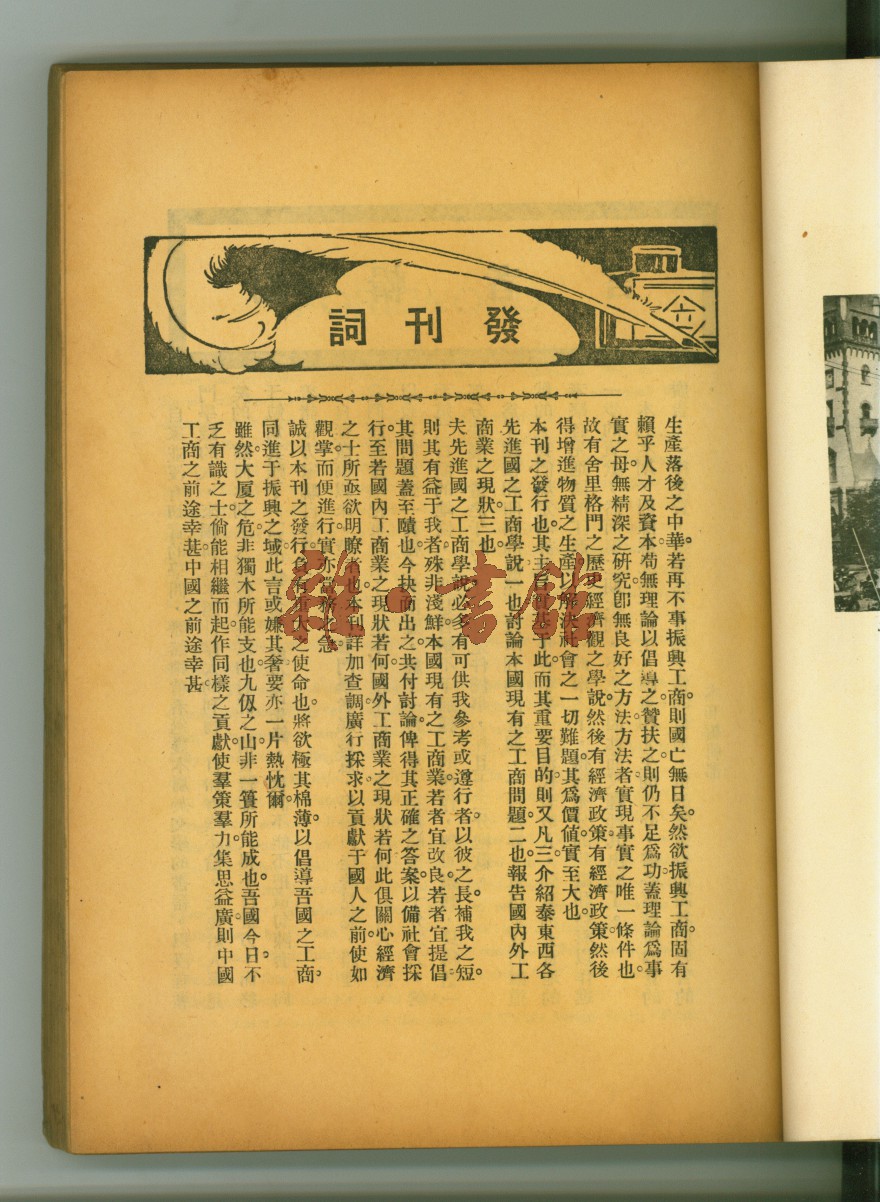 發刊詞
生產落後之中華若再不事振興工商則國亡無日矣然欲振興工商固有
賴乎人才及資本苟無理論以倡導之贊扶之則仍不足爲功蓋理論爲事
實之母無精深之硏究卽無良好之方法方法者實現事實之唯一條件也
故有舍里格門之歷史經濟觀之學說然後有經濟政策有經濟政策然後
得增進物質之生產以解決社會之一切難題其爲價値實至大也
本刊之發行也其主旨實基于此而其重要目的則又凡三介紹泰東西各
先進國之工商學說一也討論本國現有之工商問題二也報告國內外工
商業之現狀三也
夫先進國之工商學說必多有可供我參考或遵行者以彼之長補我之短
則其有益于我者殊非淺鮮本國現有之工商業若者宜改良若者宜提倡
其問題蓋至賾也今抉而出之共付討論俾得其正確之答案以備社會採
行至若國內工商業之現狀若何國外工商業之現狀若何此俱關心經濟
之士所亟欲明瞭者也本刊詳加查調廣行採求以貢獻于國人之前使如
觀掌而便進行實亦當務之急
誠以本刊之發行負有重大之使命也將欲極其棉薄以倡導吾國之工商
同進于振興之域此言或嫌其奢要亦一片熱忱爾
雖然大厦之危非獨木所能支也九仭之山非一簣所能成也吾國今日不
乏有識之士倘能相繼而起作同樣之貢獻使羣策羣力集思益廣則中國
工商之前途幸甚中國之前途幸甚
雜·書館